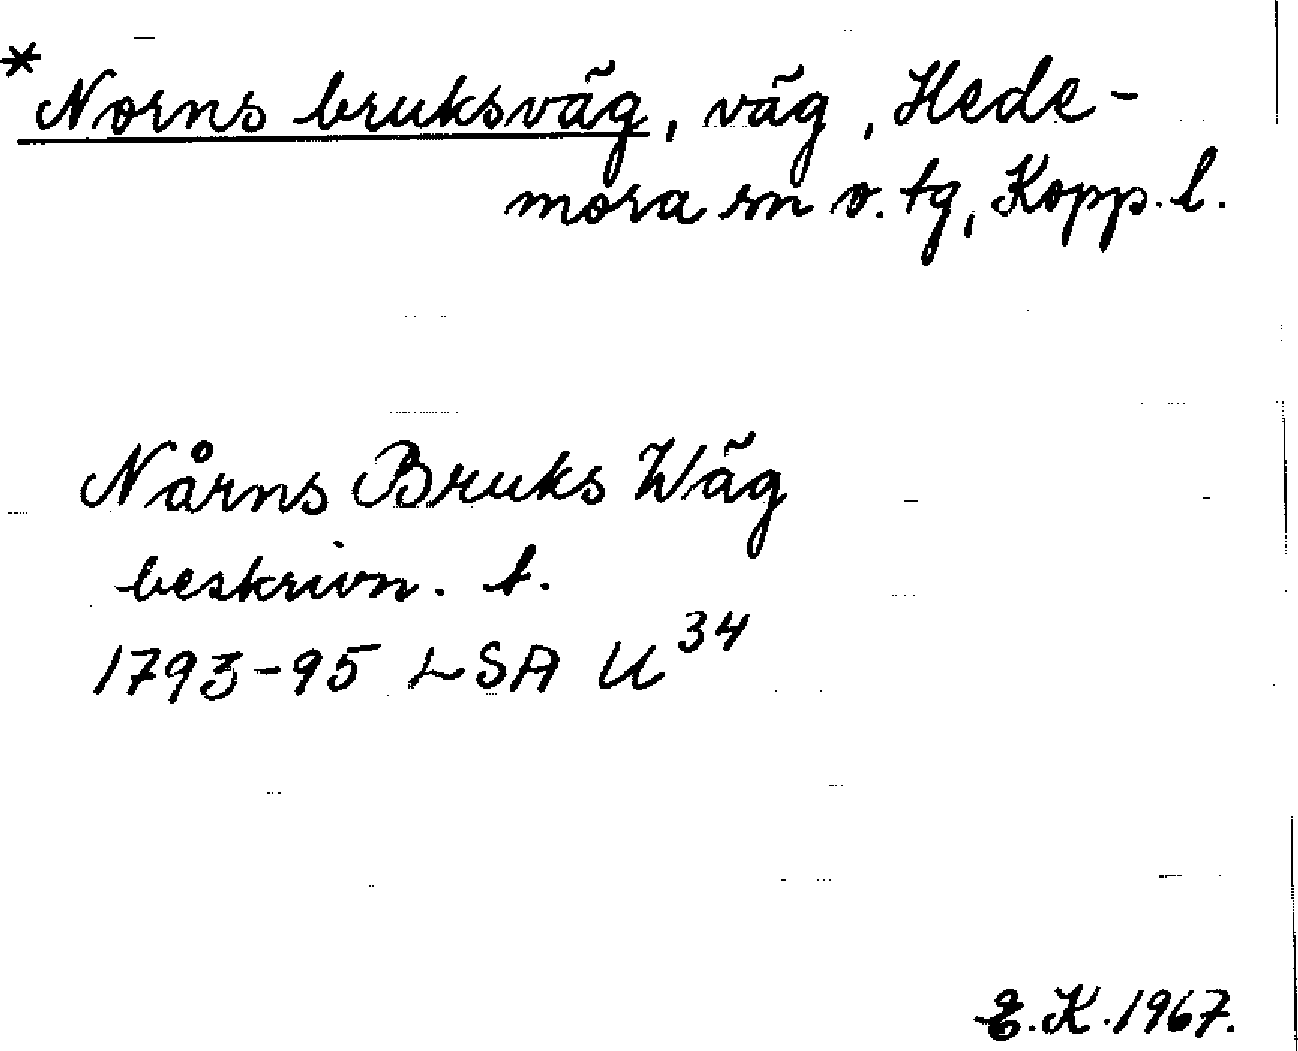 *Norns bruksväg, väg, Hede-
mora sn o. tg, Kopp. l.
Nårns Bruks Wäg
beskrivn. t.
1793-95 LSA U³⁴
E.K. 1967.